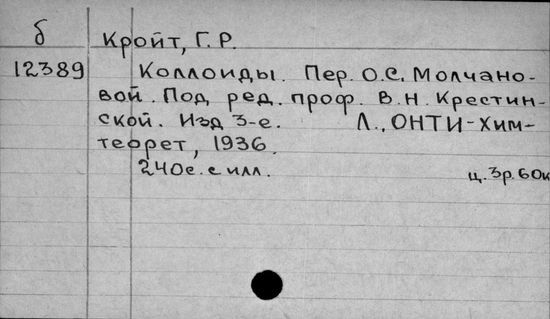 б
Кройт, Г. Р.
12389
Коллоиды. Пер. О.С. Молчано-
вой. Под ред. проф. В.Н. Крестин-
ской. Изд 3-е. Л., ОНТИ-Хим-
теорет, 1936.
240с. с илл. ц. 3р. 60к